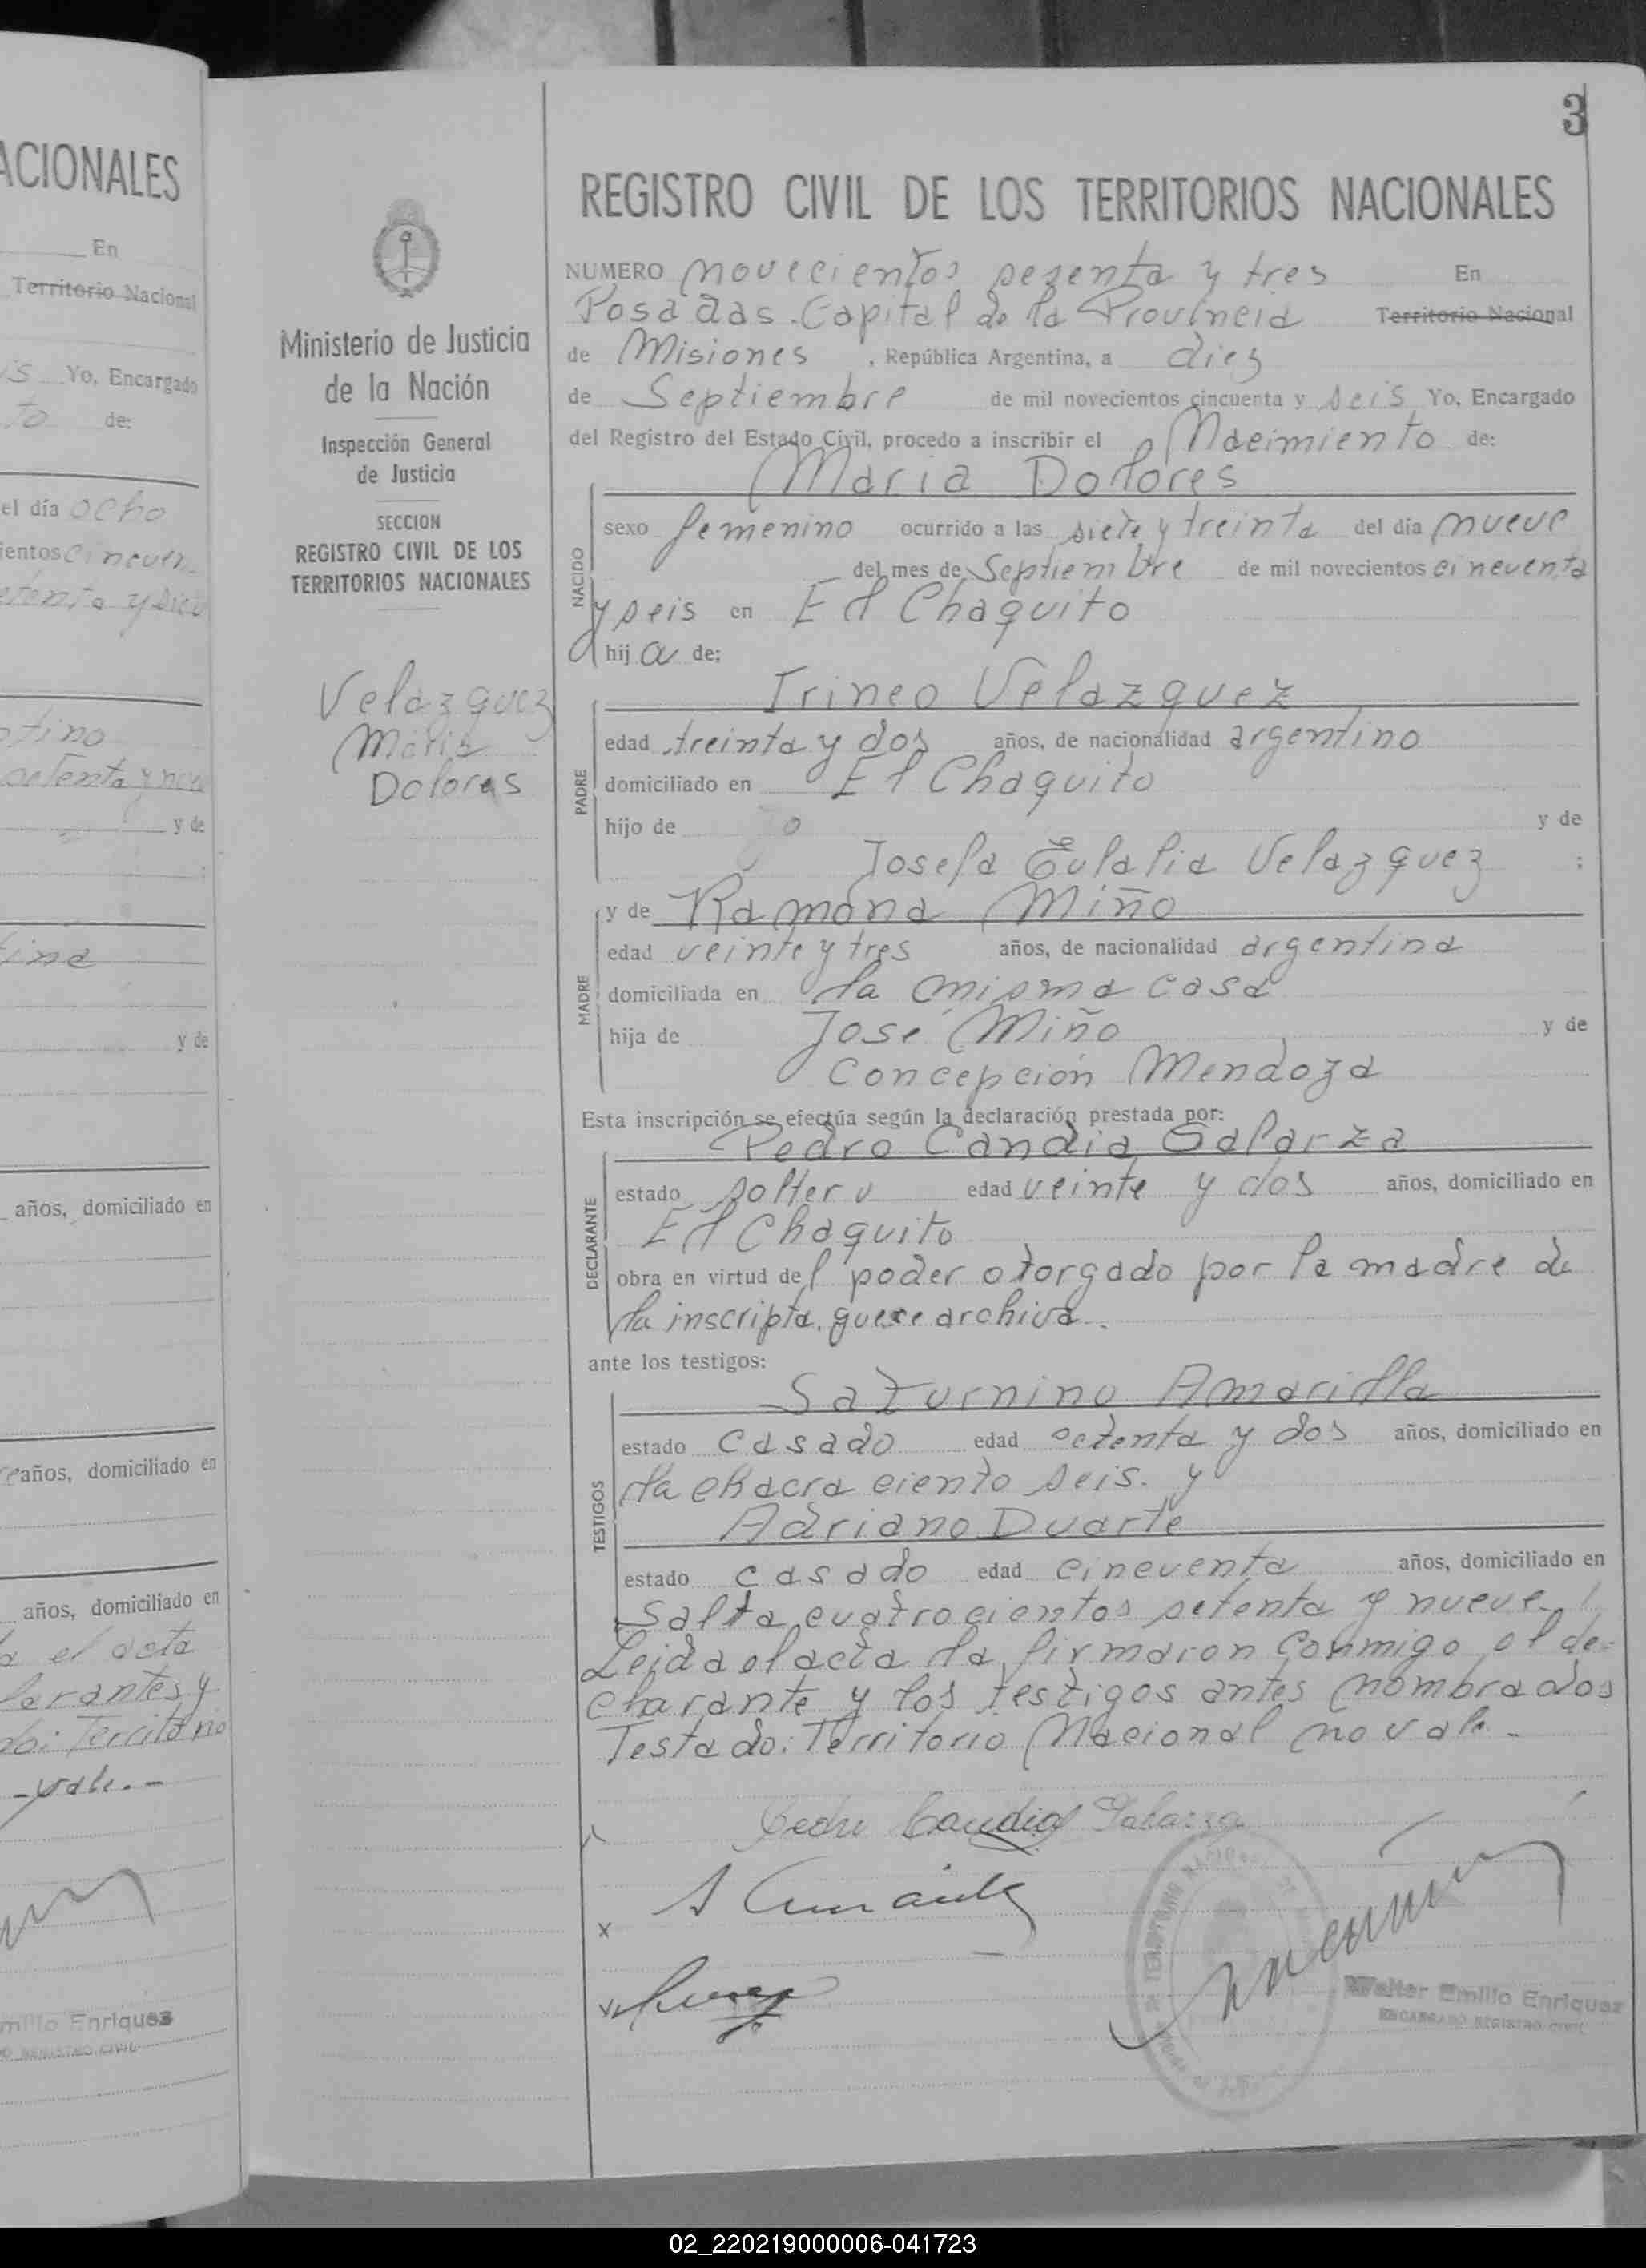 ACIONALES
En
Territorio Nacional
Yo, Encargado
to de:
el día ocho
ientos cincuen
tino
setenta y nue
y de
y de
años, domiciliado en
años, domiciliado en
años, domiciliado en
el acta
larantes y
do: Territorio
- vale. -
milio Enriquez
O REGISTRO CIVIL
Ministerio de Justicia
de la Nación
Inspección General
de Justicia
SECCION
REGISTRO CIVIL DE LOS
TERRITORIOS NACIONALES
Velazquez
Maria
Dolores
3
REGISTRO CIVIL DE LOS TERRITORIOS NACIONALES
NUMERO novecientos sesenta y tres En
Posadas. Capital de la Provincia Territorio Nacional
de Misiones , República Argentina, a diez
de Septiembre de mil novecientos cincuenta y seis Yo, Encargado
del Registro del Estado Civil, procedo a inscribir el Nacimiento de:
Maria Dolores
NACIDO
sexo femenino ocurrido a las siete y treinta del día nueve
del mes de Septiembre de mil novecientos cincuenta
y seis en El Chaquito
hij a de;
Irineo Velazquez
PADRE
edad treinta y dos años, de nacionalidad argentino
domiciliado en El Chaquito
hijo de y de
Josefa Eulalia Velazquez ;
y de Ramona Miño
MADRE
edad veinte y tres años, de nacionalidad argentina
domiciliada en la misma casa
hija de José Miño y de
Concepción Mendoza
Esta inscripción se efectúa según la declaración prestada por:
Pedro Candia Galarza
DECLARANTE
estado soltero edad veinte y dos años, domiciliado en
El Chaquito
obra en virtud del poder otorgado por la madre de
la inscripta. que se archiva.
ante los testigos:
Saturnino Amarilla
TESTIGOS
estado casado edad setenta y dos años, domiciliado en
la chacra ciento seis. y
Adriano Duarte
estado casado edad cincuenta años, domiciliado en
Salta cuatrocientos setenta y nueve.
Leida el acta la firmaron conmigo el de=
clarante y los testigos antes nombrados
Testado: Territorio Nacional no vale. -
Pedro Candia Galarza
x
Walter Emilio Enriquez
ENCARGADO REGISTRO CIVIL
02_220219000006-041723